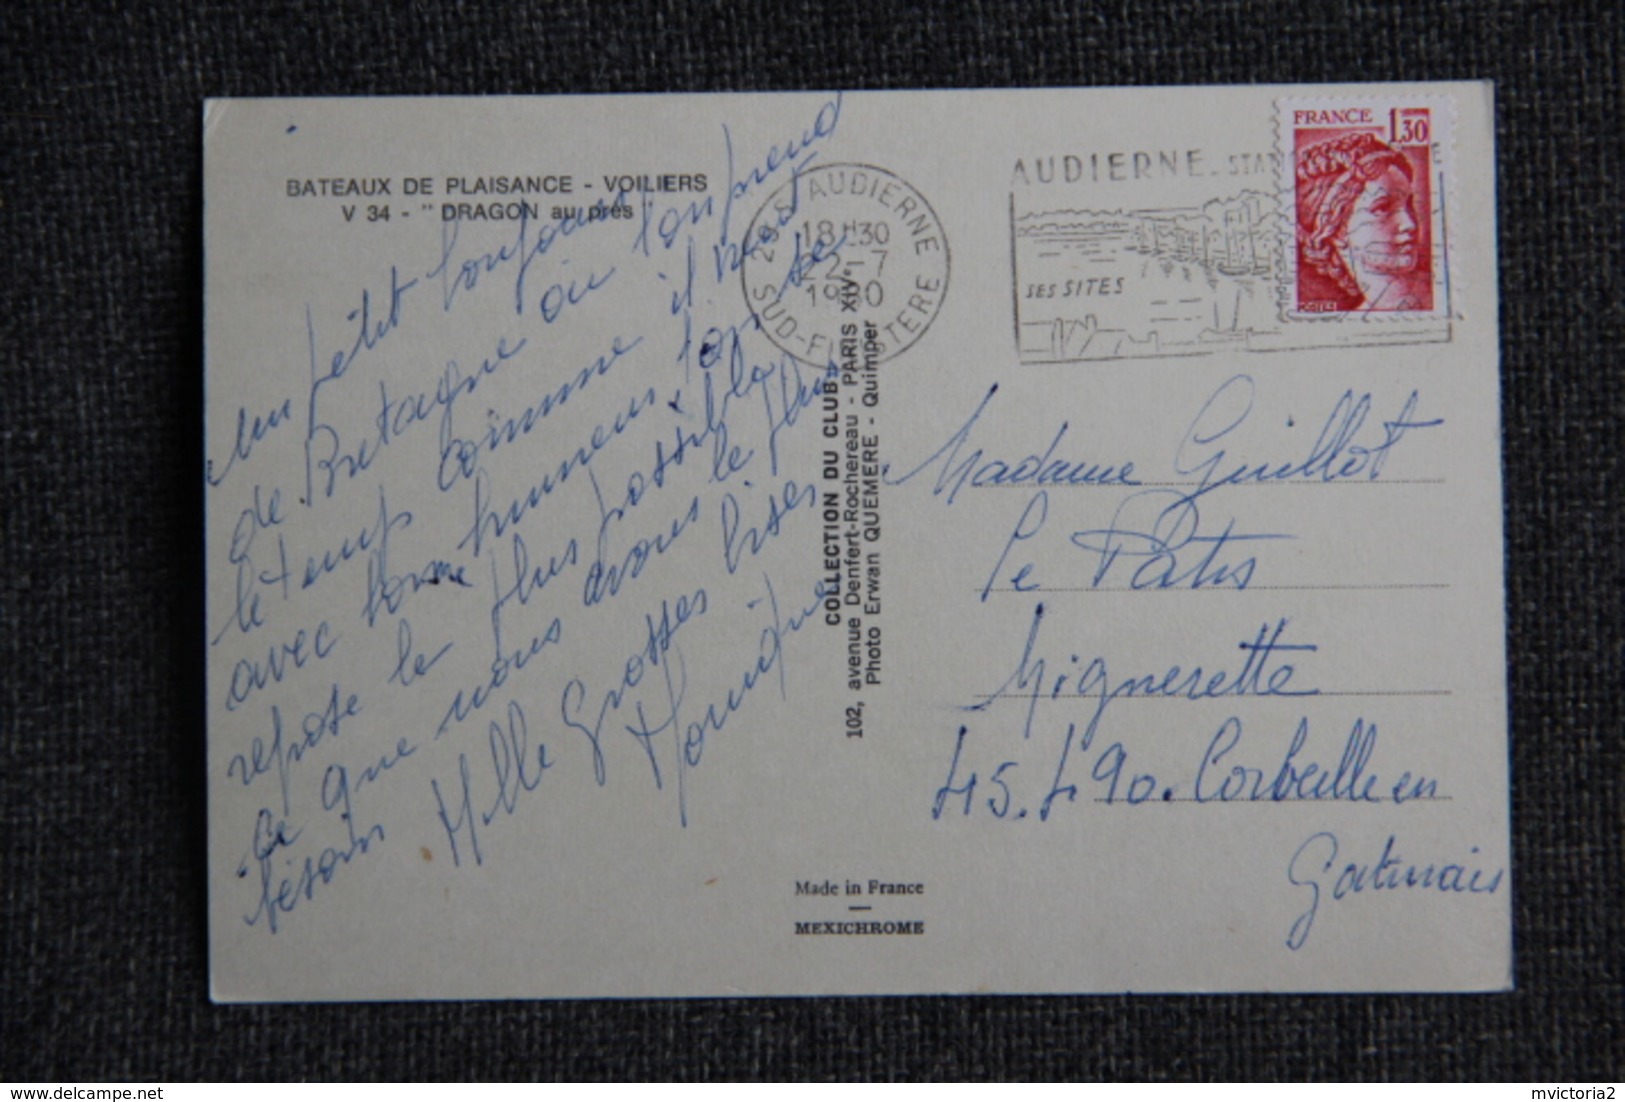 BATEAUX DE PLAISANCE - VOILIERS
V 34 - " DRAGON au près "
un petit bonjour
de Bretagne où l'on prend
le temps comme il vient
avec bonne humeur, l'on se
repose le plus possible
ce que nous avons le plus
besoin
Mille Grosses bises
Monique
COLLECTION DU CLUB
102, avenue Denfert-Rochereau - PARIS XIVe
Photo Erwan QUEMERE - Quimper
29 S AUDIERNE
18H30
22-7
1980
SUD-FINISTERE
AUDIERNE - STAT
SES SITES
FRANCE
1,30
Madame Guillot
Le Patis
Mignerette
45.490. Corbeille en
Gatinais
Made in France
MEXICHROME
mvictoria2